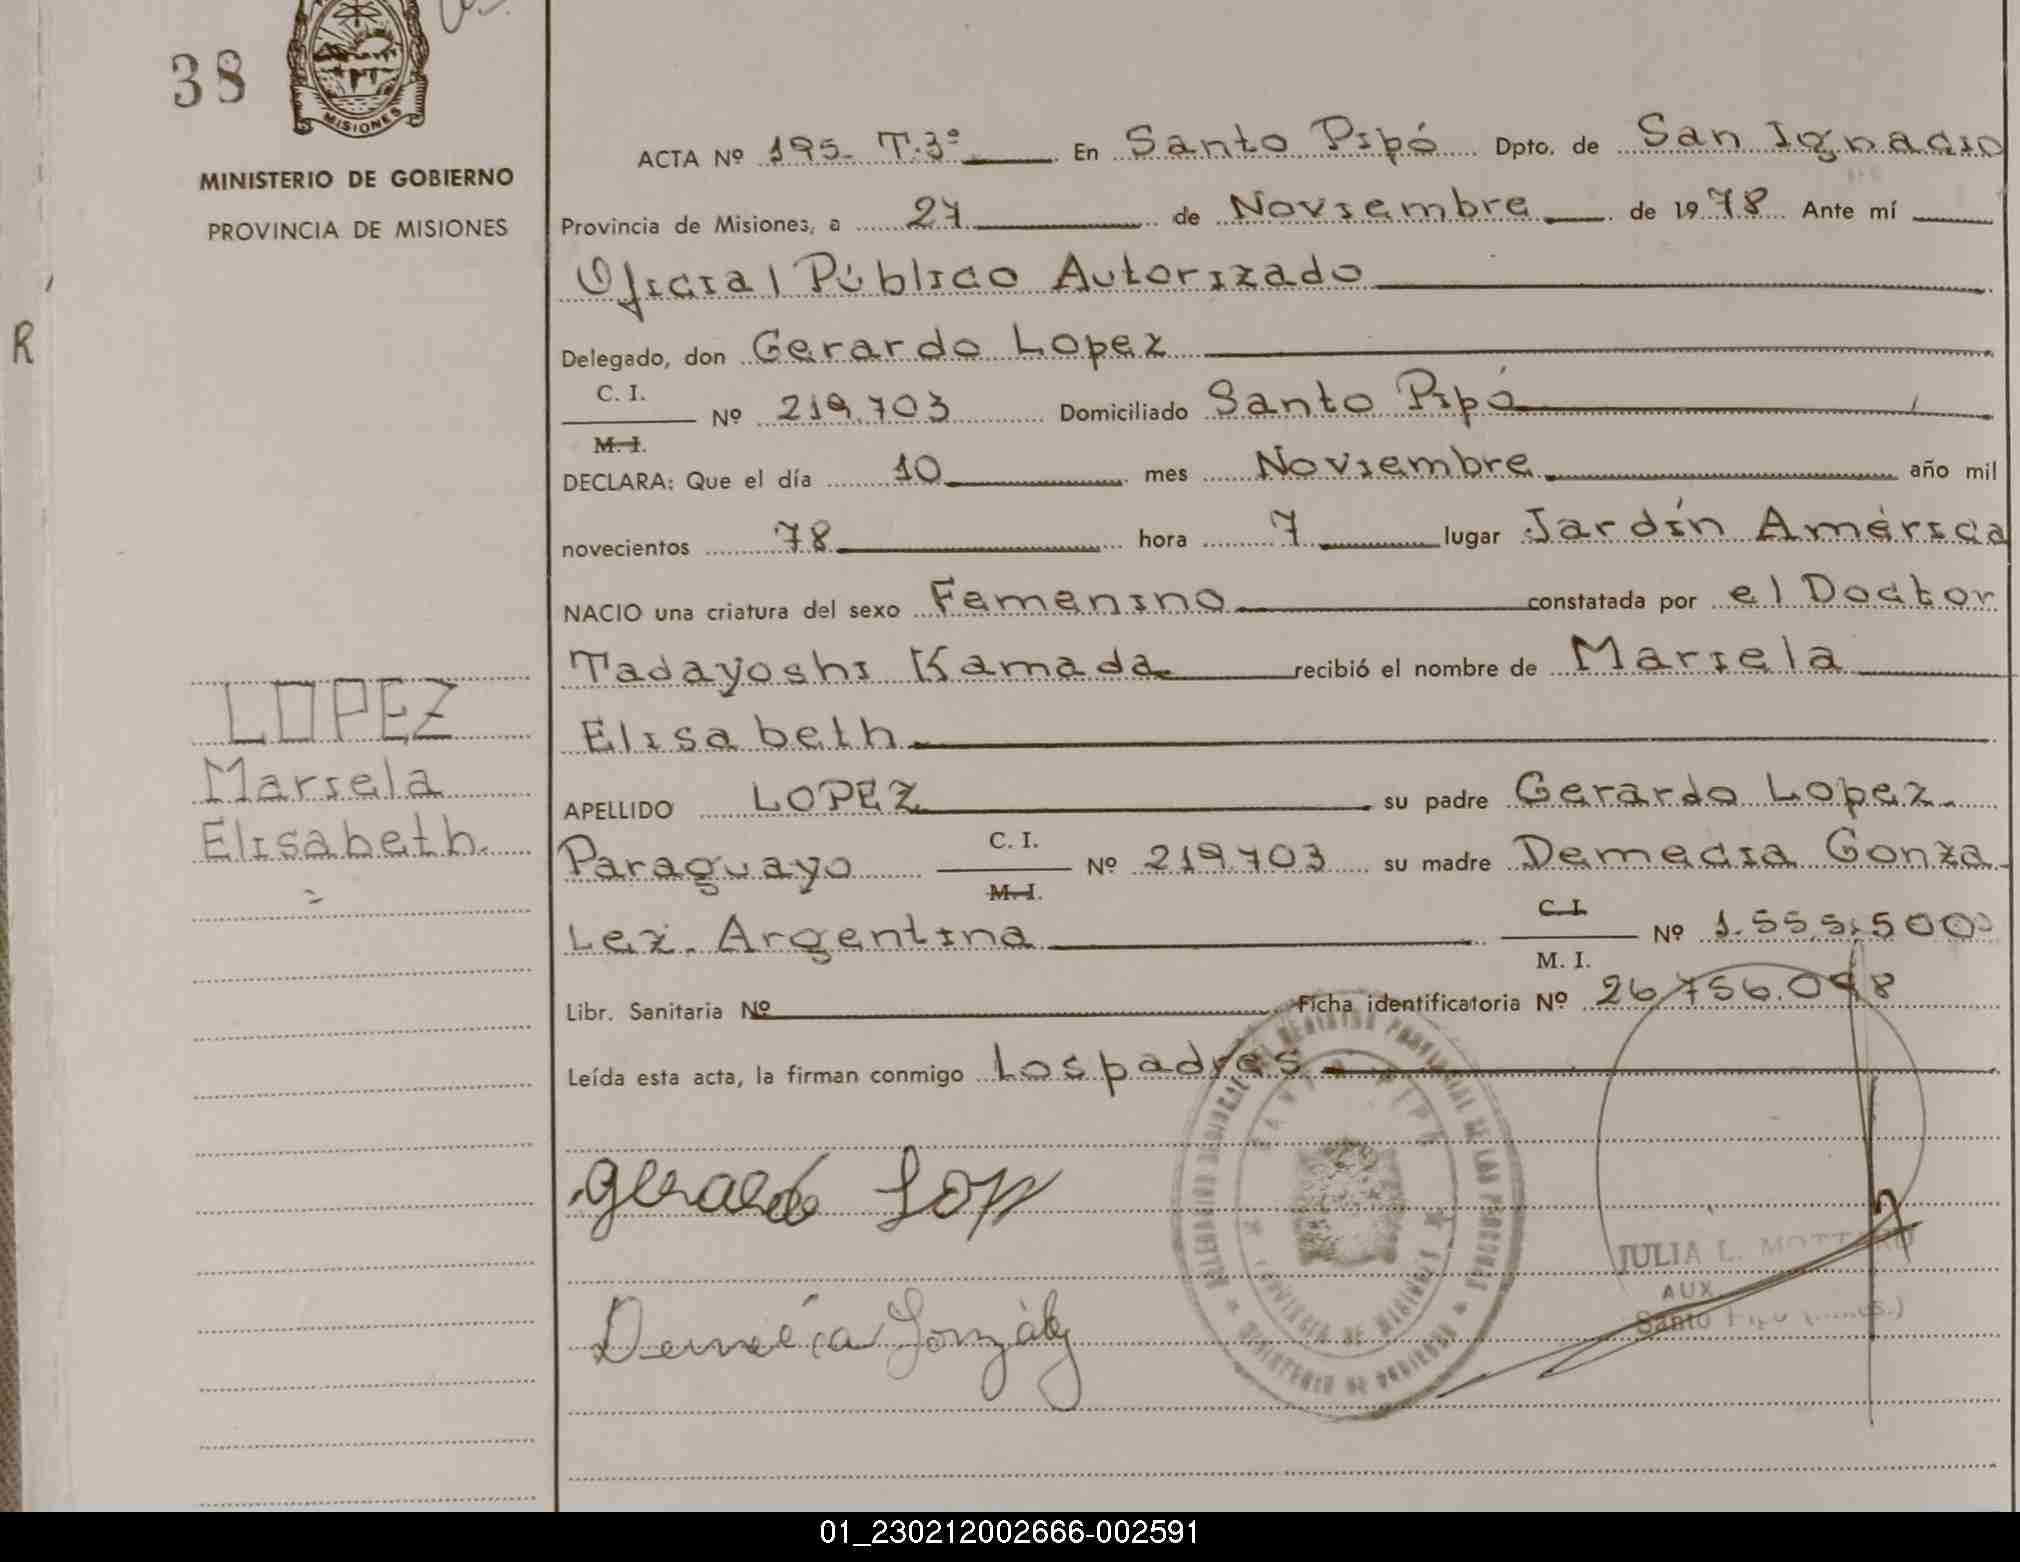 38
MISIONES
MINISTERIO DE GOBIERNO
PROVINCIA DE MISIONES
R
LOPEZ
Mariela
Elisabeth.
ACTA Nº 195. T.3º En Santo Pipó Dpto. de San Ignacio
Provincia de Misiones, a 27 de Noviembre de 1978 Ante mí
Oficial Público Autorizado
Delegado, don Gerardo Lopez
C. I.
Nº 219.703 Domiciliado Santo Pipó
M. I.
DECLARA: Que el día 10 mes Noviembre año mil
novecientos 78 hora 7 lugar Jardín América
NACIO una criatura del sexo Femenino constatada por el Doctor
Tadayoshi Kamada recibió el nombre de Mariela
Elisabeth
APELLIDO LOPEZ su padre Gerardo Lopez.
Paraguayo C. I. Nº 219.703 su madre Demecia Gonza
M. I.
Lez. Argentina C. I. Nº 1.555.500
M. I.
Libr. Sanitaria Nº Ficha identificatoria Nº 26.756.098
Leída esta acta, la firman conmigo Los padres
Gerardo Lop
Demécia González
SANTO PIPO
PROVINCIA DE MISIONES
MINISTERIO DE GOBIERNO
JULIA L. MOTTERO
AUX.
Santo Pipó
01_230212002666-002591